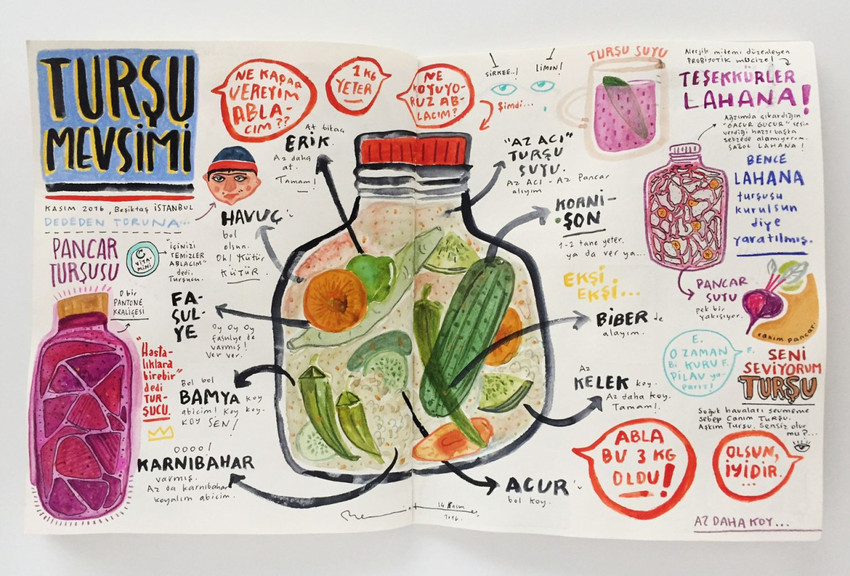 TURŞU
MEVSİMİ
KASIM 2016, Beşiktaş İSTANBUL
DEDEDEN TORUNA...
NE KADAR
VEREYİM
ABLA-
CIM??
1 KG
YETER
NE
KOYUYO-
RUZ AB-
LACIM?
SİRKE..!
LİMON!
Şimdi...
TURŞU SUYU
PROBİYOTİK mucize!
TEŞEKKÜRLER
LAHANA!
Ağzımda çıkardığın
"GACUR GUCUR" sesin
verdiği hazzı başka
sebzede alamıyorum!
SAĞOL LAHANA!
BENCE
LAHANA
turşusu
kurulsun
diye
yaratılmış.
At bikaç
ERİK.
Az daha
at.
Tamam!
"AZ ACI"
TURŞU
SUYU.
Az Acı - Az Pancar
alıyım
HAVUÇ
bol
olsun.
Oh! Kütür
KÜTÜR
KORNİ-
ŞON
1-2 tane yeter.
ya da ver ya...
PANCAR
TURŞUSU
C
VİTA-
MİNİ
"İÇİNİZİ
TEMİZLER
ABLACIM"
dedi.
Turşucu.
O bir
PANTONE
KRALİÇESİ
FA-
SUL-
YE
Oy Oy Oy
fasulye de
varmış!
Ver ver.
EKŞİ
EKŞİ...
BİBER de
alayım.
PANCAR
SUYU
pek bir
yakışıyor.
canım pancar.
"Hasta-
lıklara
birebir"
dedi
TUR-
ŞUCU.
Bol bol
BAMYA koy
abicim! Koy koy.
KOY SEN!
Az
KELEK koy.
Az daha koy.
Tamam!
E.
O ZAMAN
Bi KURU F.
PİLAV ya-
parız!
SENİ
SEVİYORUM
TURŞU
Soğuk havaları sevmeme
Sebep Canım TURŞU.
Aşkım Turşu. Sensiz olur
mu?...
OOOO!
KARNIBAHAR
varmış.
Az da karnıbahar
koyalım abicim.
ACUR
bol koy.
ABLA
BU 3 KG
OLDU!
OLSUN,
İYİDİR.
...
14 Kasım
2016.
AZ DAHA KOY...